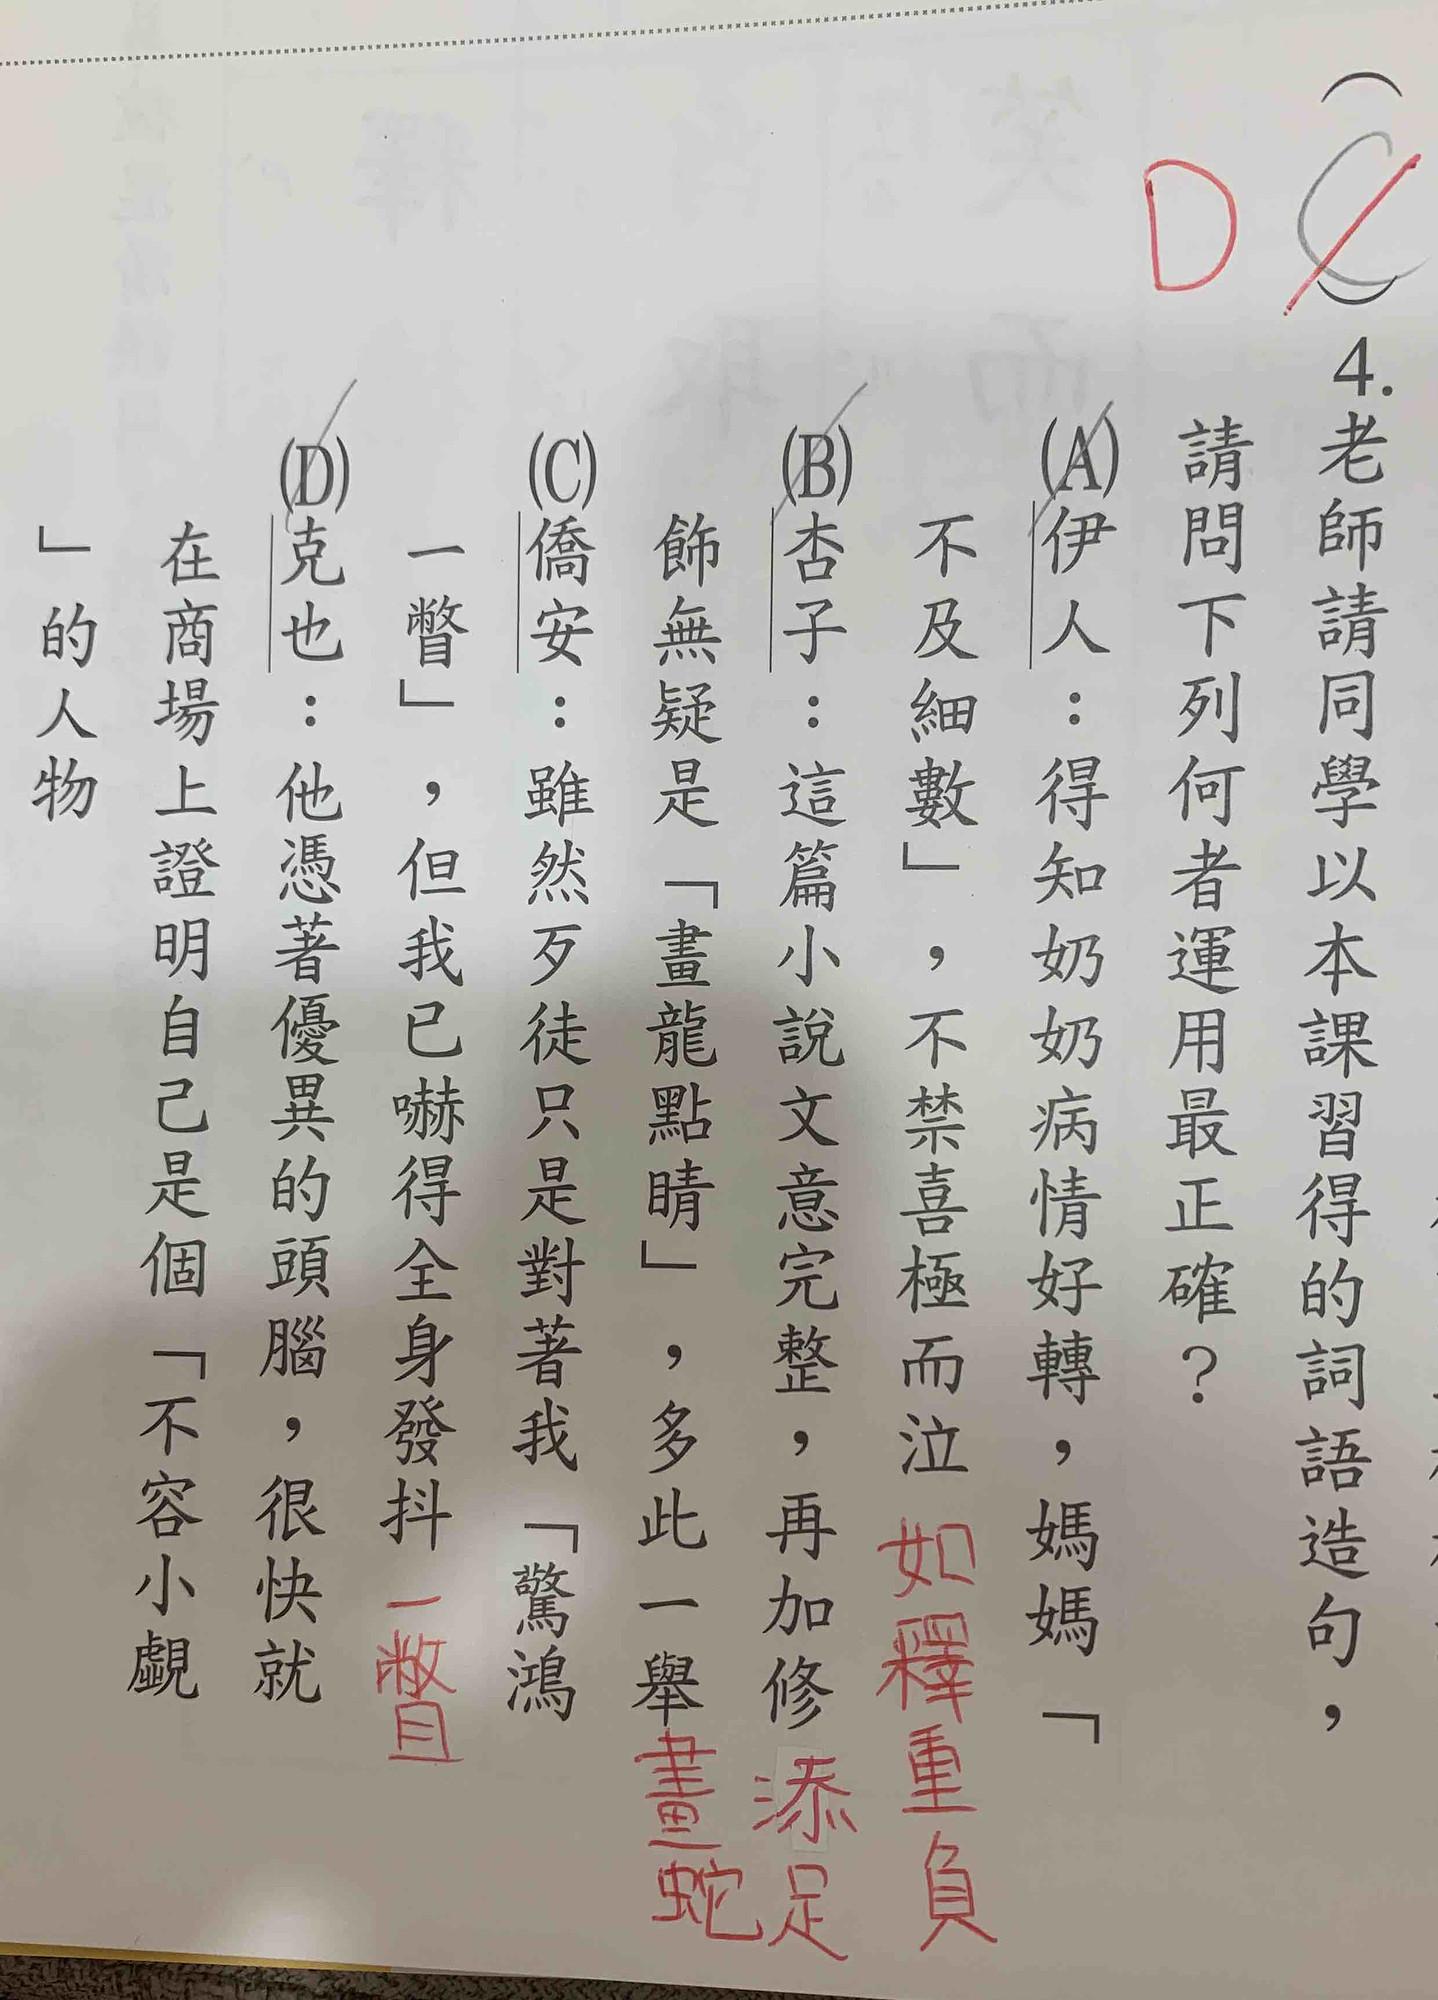 ( C ) 4.老師請同學以本課習得的詞語造句，
D
請問下列何者運用最正確？
(A)伊人：得知奶奶病情好轉，媽媽「
不及細數」，不禁喜極而泣 如釋重負
(B)杏子：這篇小說文意完整，再加修
飾無疑是「畫龍點睛」，多此一舉 畫蛇
添足
(C)僑安：雖然歹徒只是對著我「驚鴻
一瞥」，但我已嚇得全身發抖 一瞥
(D)克也：他憑著優異的頭腦，很快就
在商場上證明自己是個「不容小覷
」的人物